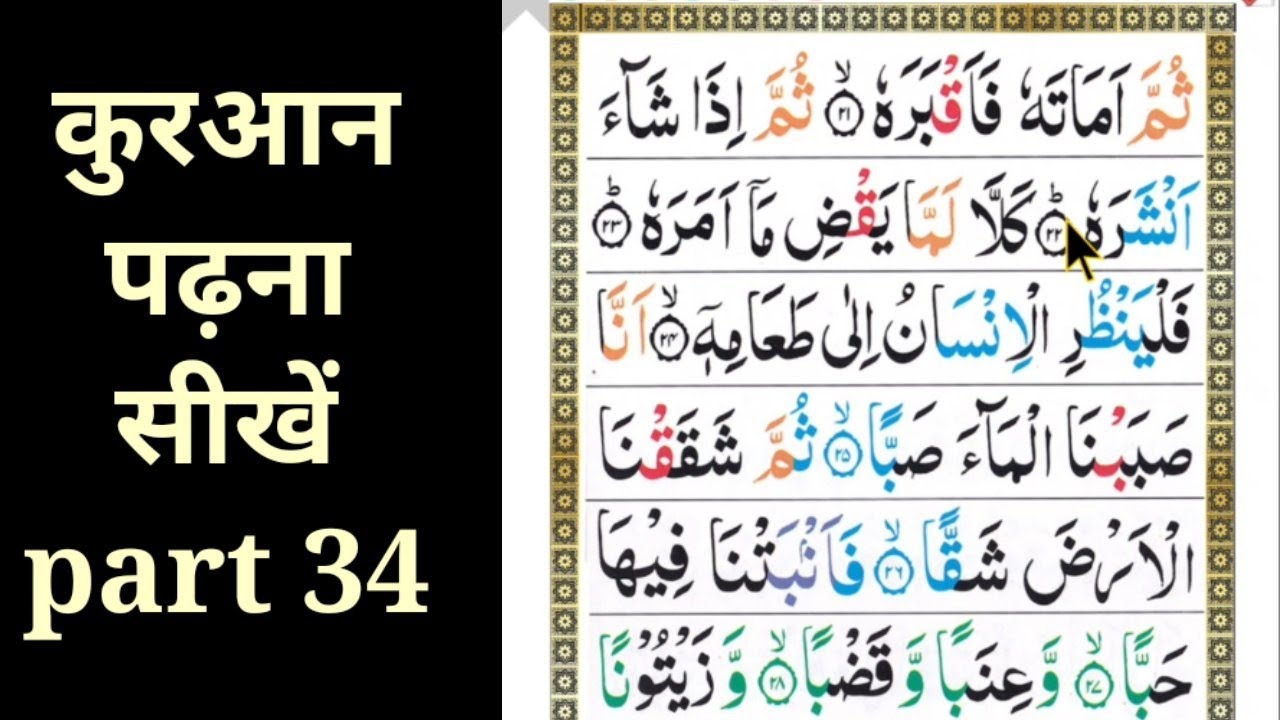 कुरआन
पढ़ना
सीखें
part 34
ثُمَّ اَمَاتَهٗ فَاَقْبَرَهٗ ۙ‏﴿۲۱﴾ ثُمَّ اِذَا شَآءَ
اَنْشَرَهٗ ؕ‏﴿۲۲﴾ كَلَّا لَمَّا يَقْضِ مَاۤ اَمَرَهٗ ؕ‏﴿۲۳﴾
فَلْيَنْظُرِ الْاِنْسَانُ اِلٰى طَعَامِهٖۤ ۙ‏﴿۲۴﴾ اَنَّا
صَبَبْنَا الْمَآءَ صَبًّا ۙ‏﴿۲۵﴾ ثُمَّ شَقَقْنَا
الْاَرْضَ شَقًّا ۙ‏﴿۲۶﴾ فَاَنْۢبَتْنَا فِيْهَا
حَبًّا ۙ‏﴿۲۷﴾ وَّعِنَبًا وَّقَضْبًا ۙ‏﴿۲۸﴾ وَّزَيْتُوْنًا